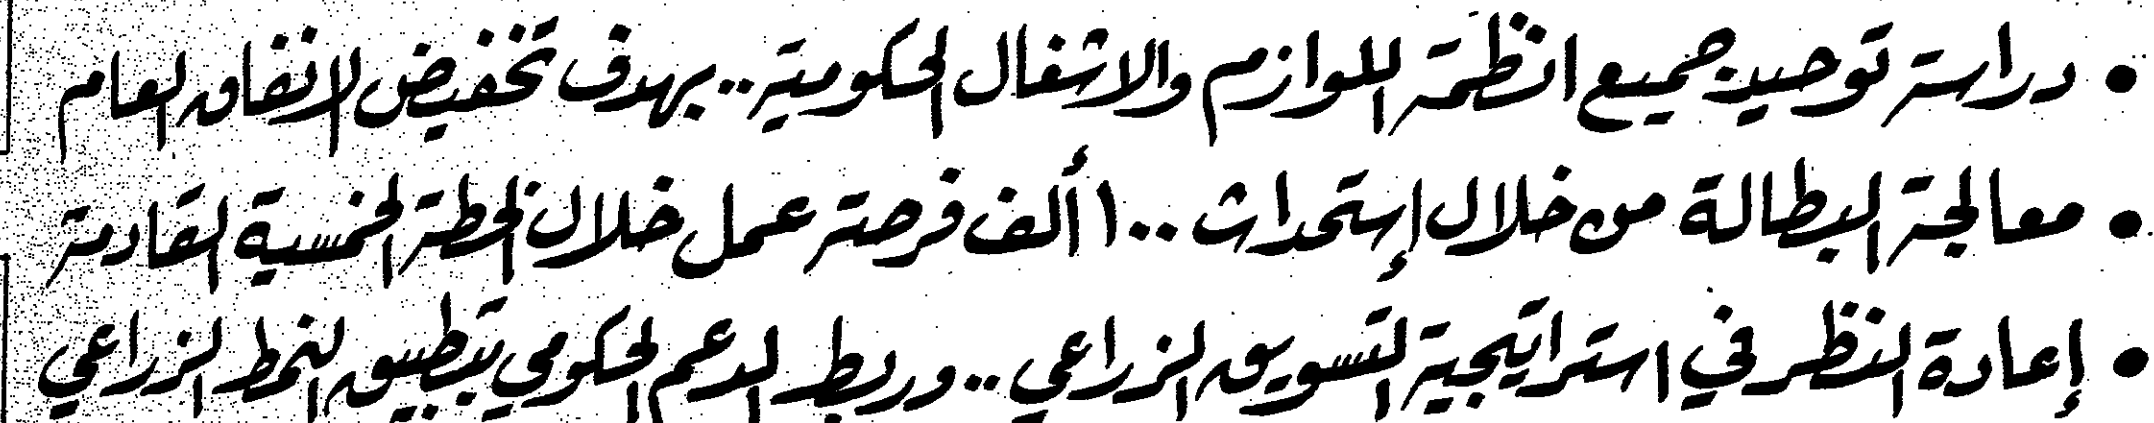 • دراسة توحيد جميع انظمة اللوازم والاشغال الحكومية .. بهدف تخفيض الانفاق العام
• معالجة البطالة من خلال إستحداث ١٠٠ ألف فرصة عمل خلال الخطة الخمسية القادمة
• إعادة النظر في استراتيجية التسويق الزراعي .. وربط الدعم الحكومي بتطبيق النمط الزراعي